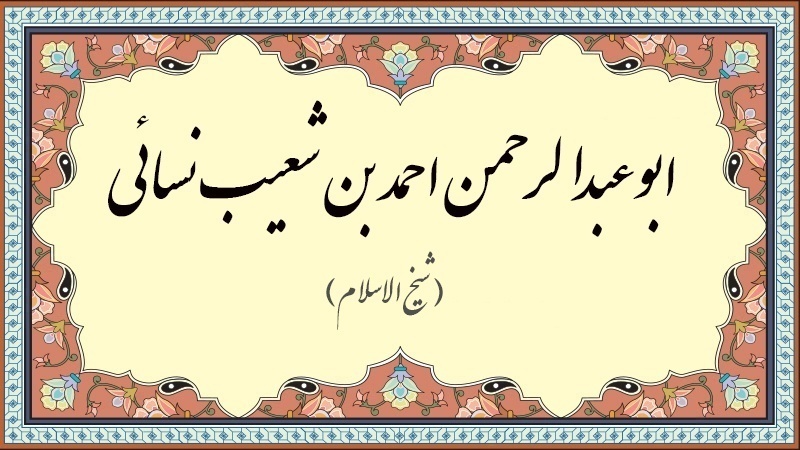 ابوعبدالرحمن احمد بن شعیب نسائی
(شیخ الاسلام)